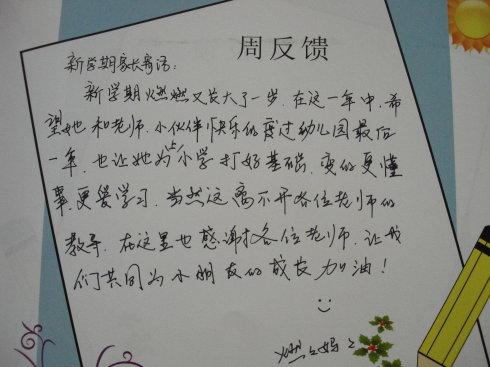 周反馈
新学期家长寄语：
新学期燃燃又长大了一岁，在这一年中，希
望她和老师、小伙伴们快乐的度过幼儿园最后
一年，也让她为上小学打好基础，变的更懂
事，更爱学习，当然这离不开各位老师的
教导，在这里也感谢各位老师，让我
们共同为小朋友的成长加油！
燃燃妈妈